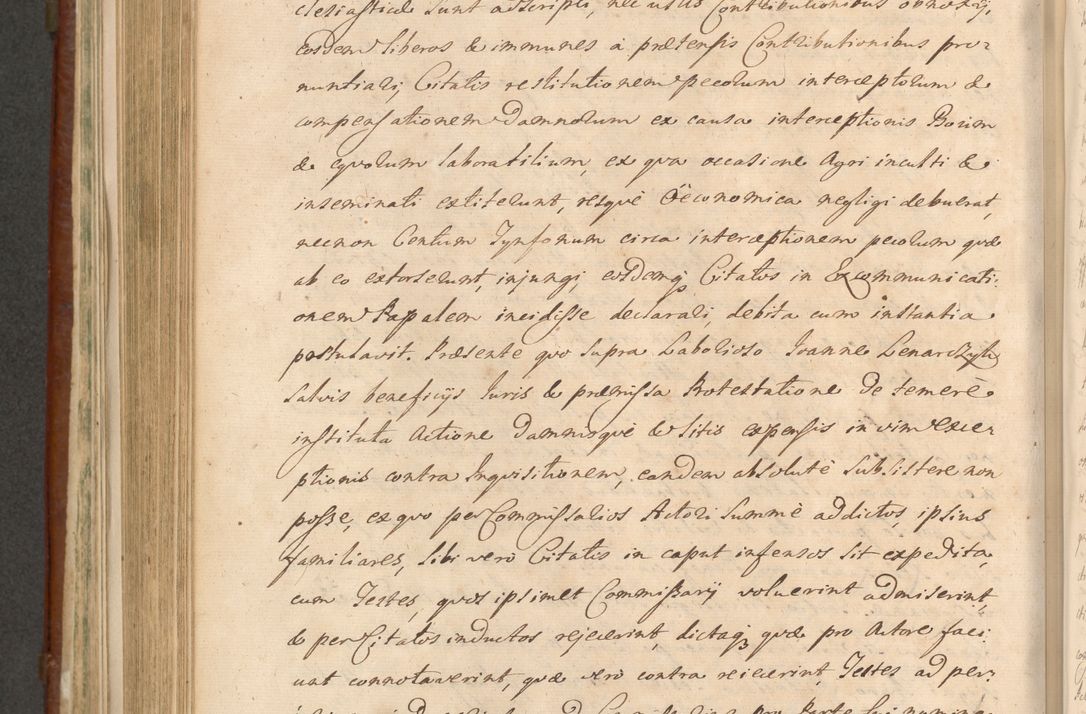 clesiasticæ sunt adscripti, nec ullis Contributionibus obnoxij,
eosdem liberos & immunes à prætensis Contributionibus pro-
nuntiari; Citatis restitutionem pecorum interceptorum &
compensationem Damnorum ex causa interceptionis Boum
& eqvorum laborabilium, ex qva occasione Agri inculti &
inseminati extiterunt, resqvè Öeconomica negligi debuerat,
necnon Centum Tynfonum circa interceptionem pecorum qvæ
ab eo extorserunt, injungi, eosdemq; Citatos in Excommunicati-
onem Papalem incidisse declarari, debita cum instantia
postulavit. Præsente qvo supra Laborioso Joanne Lenarczyk
Salvis beneficijs Juris & præmissa Protestatione De temerè
instituta Actione Damnisqvè & litis expensis in vim exce-
ptionis contra Inqvisitionem, eandem absolutè subsistere non
posse, ex qvo per Commissarios Actori summè addictos, ipsius
familiares, sibi verò Citatis in caput infensos sit expedita,
cum Testes, qvos ipsimet Commissarij voluerint admiserint,
& per Citatos inductos rejecerint, dictaq; qvæ pro Actore faci-
unt connotaverint, qvæ verò contra reiecerint, Testes ad per-